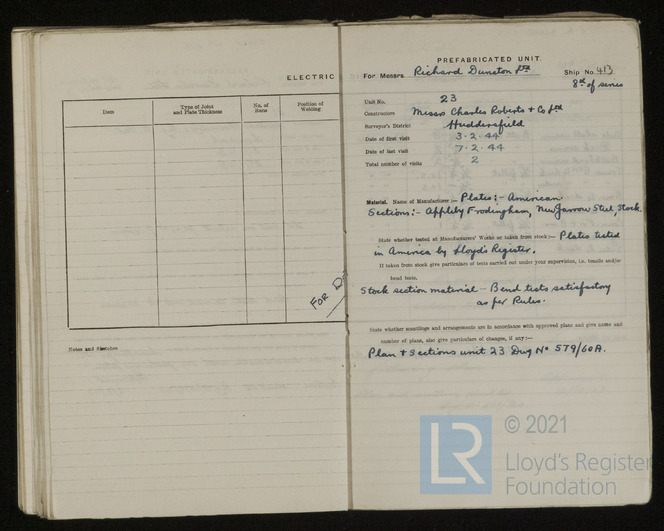 ELECTRIC
Item
Type of Joint
and Plate Thickness
No. of
Runs
Position of
Welding
FOR
Notes and Sketches
PREFABRICATED UNIT.
For Messrs. Richard Dunston Ltd Ship No. 413
8th of series
Unit No. 23
Constructors Messrs Charles Roberts & Co Ltd
Surveyor's District Huddersfield
Date of first visit 3.2.44
Date of last visit 7.2.44
Total number of visits 2
Material. Name of Manufacturer :— Plates :- American
Sections :- Appleby Frodingham, New Jarrow Steel, Stock.
State whether tested at Manufacturers' Works or taken from stock :— Plates tested
in America by Lloyd's Register.
If taken from stock give particulars of tests carried out under your supervision, i.e. tensile and/or
bend tests.
Stock section material - Bend tests satisfactory
as per Rules.
State whether scantlings and arrangements are in accordance with approved plans and give name and
number of plans, also give particulars of changes, if any :—
Plan & Sections unit 23 Dwg No 579/60A.
LR
© 2021
Lloyd's Register
Foundation